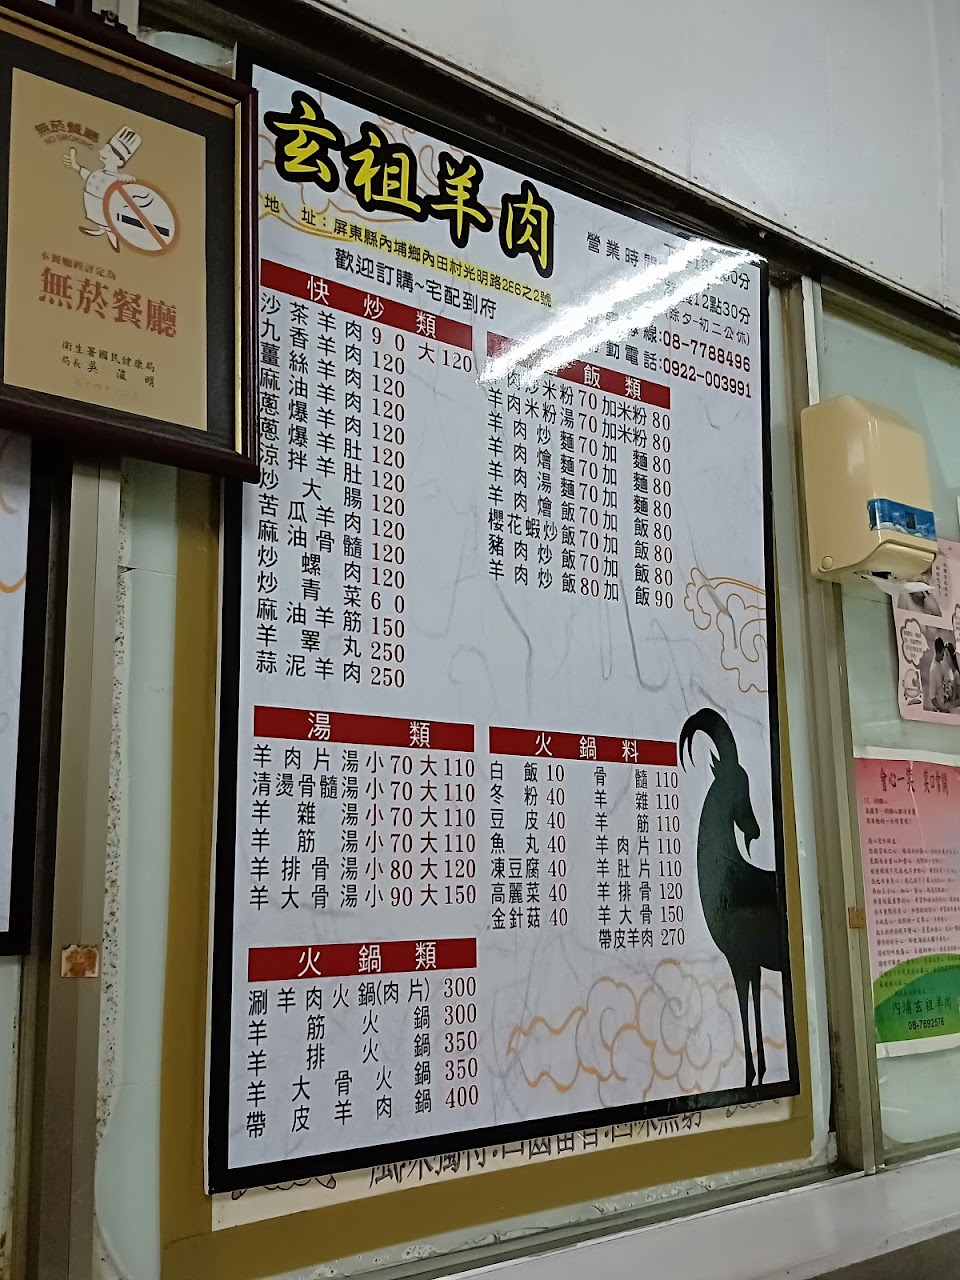 無菸餐廳
NO SMOKING
本餐廳經評定為
無菸餐廳
衛生署國民健康局
局長 吳浚明
玄祖羊肉
地 址：屏東縣內埔鄉內田村光明路286之2號
歡迎訂購~宅配到府
營業時間
00分
12點30分
除夕-初二公休)
線:08-7788496
動電話:0922-003991
快炒類
沙茶羊肉90大120
九香羊肉120
薑絲羊肉120
麻油羊肉120
蔥爆羊肉120
蔥爆羊肚120
涼拌羊肚120
炒大腸120
苦瓜羊肉120
麻油骨髓120
炒螺肉120
炒青菜60
麻油羊筋150
羊睪丸250
蒜泥羊肉250
飯類
肉炒米粉70加米粉80
羊肉米粉湯70加米粉80
羊肉炒麵70加麵80
羊肉燴麵70加麵80
羊肉湯麵70加麵80
羊肉燴飯70加飯80
櫻花蝦炒飯70加飯80
豬肉炒飯70加飯80
羊肉炒飯80加飯90
湯類
羊肉片湯小70大110
清燙骨髓湯小70大110
羊雜湯小70大110
羊筋湯小70大110
羊排骨湯小80大120
羊大骨湯小90大150
火鍋料
白飯10 骨髓110
冬粉40 羊雜110
豆皮40 羊筋110
魚丸40 羊肉片110
凍豆腐40 羊肚片110
高麗菜40 羊排骨120
金針菇40 羊大骨150
帶皮羊肉270
火鍋類
涮羊肉火鍋(肉片)300
羊筋火鍋300
羊排火鍋350
羊大骨火鍋350
帶皮羊肉鍋400
會心一笑 笑口常開
內埔玄祖羊肉
08-7692576